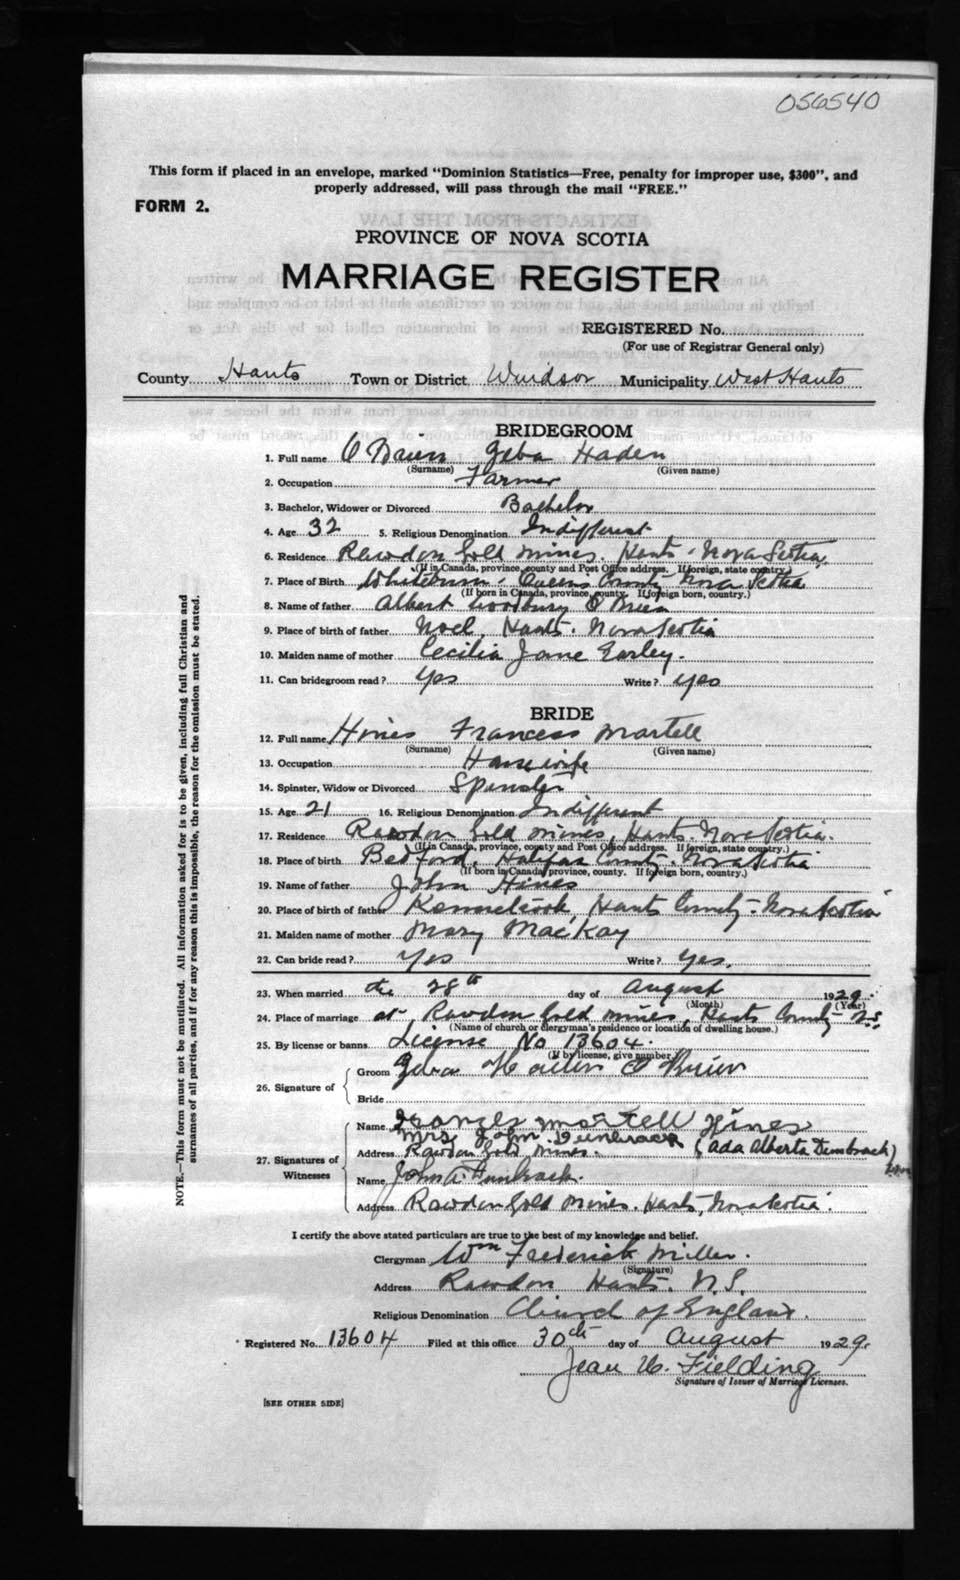 056540
This form if placed in an envelope, marked "Dominion Statistics—Free, penalty for improper use, $300", and
properly addressed, will pass through the mail "FREE."
FORM 2.
PROVINCE OF NOVA SCOTIA
MARRIAGE REGISTER
REGISTERED No.
(For use of Registrar General only)
County Hants Town or District Windsor Municipality West Hants
BRIDEGROOM
1. Full name O'Brien Zeba Haden
(Surname) (Given name)
2. Occupation Farmer
3. Bachelor, Widower or Divorced Bachelor
4. Age 32 5. Religious Denomination Indifferent
6. Residence Rawdon Gold Mines. Hants. Nova Scotia
(If in Canada, province, county and Post Office address. If foreign, state country.)
7. Place of Birth Whiteburn. Queens County Nova Scotia
(If born in Canada, province, county. If foreign born, country.)
8. Name of father Albert Woodbury O'Brien
9. Place of birth of father Noel, Hants. Nova Scotia
10. Maiden name of mother Cecilia Jane Earley.
11. Can bridegroom read? Yes Write? yes
BRIDE
12. Full name Hines Frances Martell
(Surname) (Given name)
13. Occupation Housewife
14. Spinster, Widow or Divorced Spinster
15. Age 21 16. Religious Denomination Indifferent
17. Residence Rawdon Gold Mines, Hants. Nova Scotia.
(If in Canada, province, county and Post Office address. If foreign, state country.)
18. Place of birth Bedford, Halifax County. Nova Scotia
(If born in Canada, province, county. If foreign born, country.)
19. Name of father John Hines
20. Place of birth of father Kennetcook, Hants County. Nova Scotia
21. Maiden name of mother Mary MacKay
22. Can bride read? Yes Write? Yes.
23. When married the 28th day of August 1929.
(Month) (Year)
24. Place of marriage at Rawdon Gold Mines, Hants County N.S.
(Name of church or clergyman's residence or location of dwelling house.)
25. By license or banns. License No 13604.
(If by license, give number)
26. Signature of Groom Zeba Haden O'Brien
Bride
Name Frances Martell Hines
Mrs John Dunbrack
27. Signatures of Witnesses Address Rawdon Gold Mines. (Ada Alberta Dunbrack)
Name John A. Dunbrack.
Address Rawdon Gold Mines. Hants, Nova Scotia.
I certify the above stated particulars are true to the best of my knowledge and belief.
Clergyman Wm Frederick Miller.
(Signature)
Address Rawdon Hants. N.S.
Religious Denomination Church of England.
Registered No. 13604 Filed at this office 30th day of August 1929.
Jean W. Fielding
Signature of Issuer of Marriage Licenses.
[SEE OTHER SIDE]
NOTE.—This form must not be mutilated. All information asked for is to be given, including full Christian and
surnames of all parties, and if for any reason this is impossible, the reason for the omission must be stated.